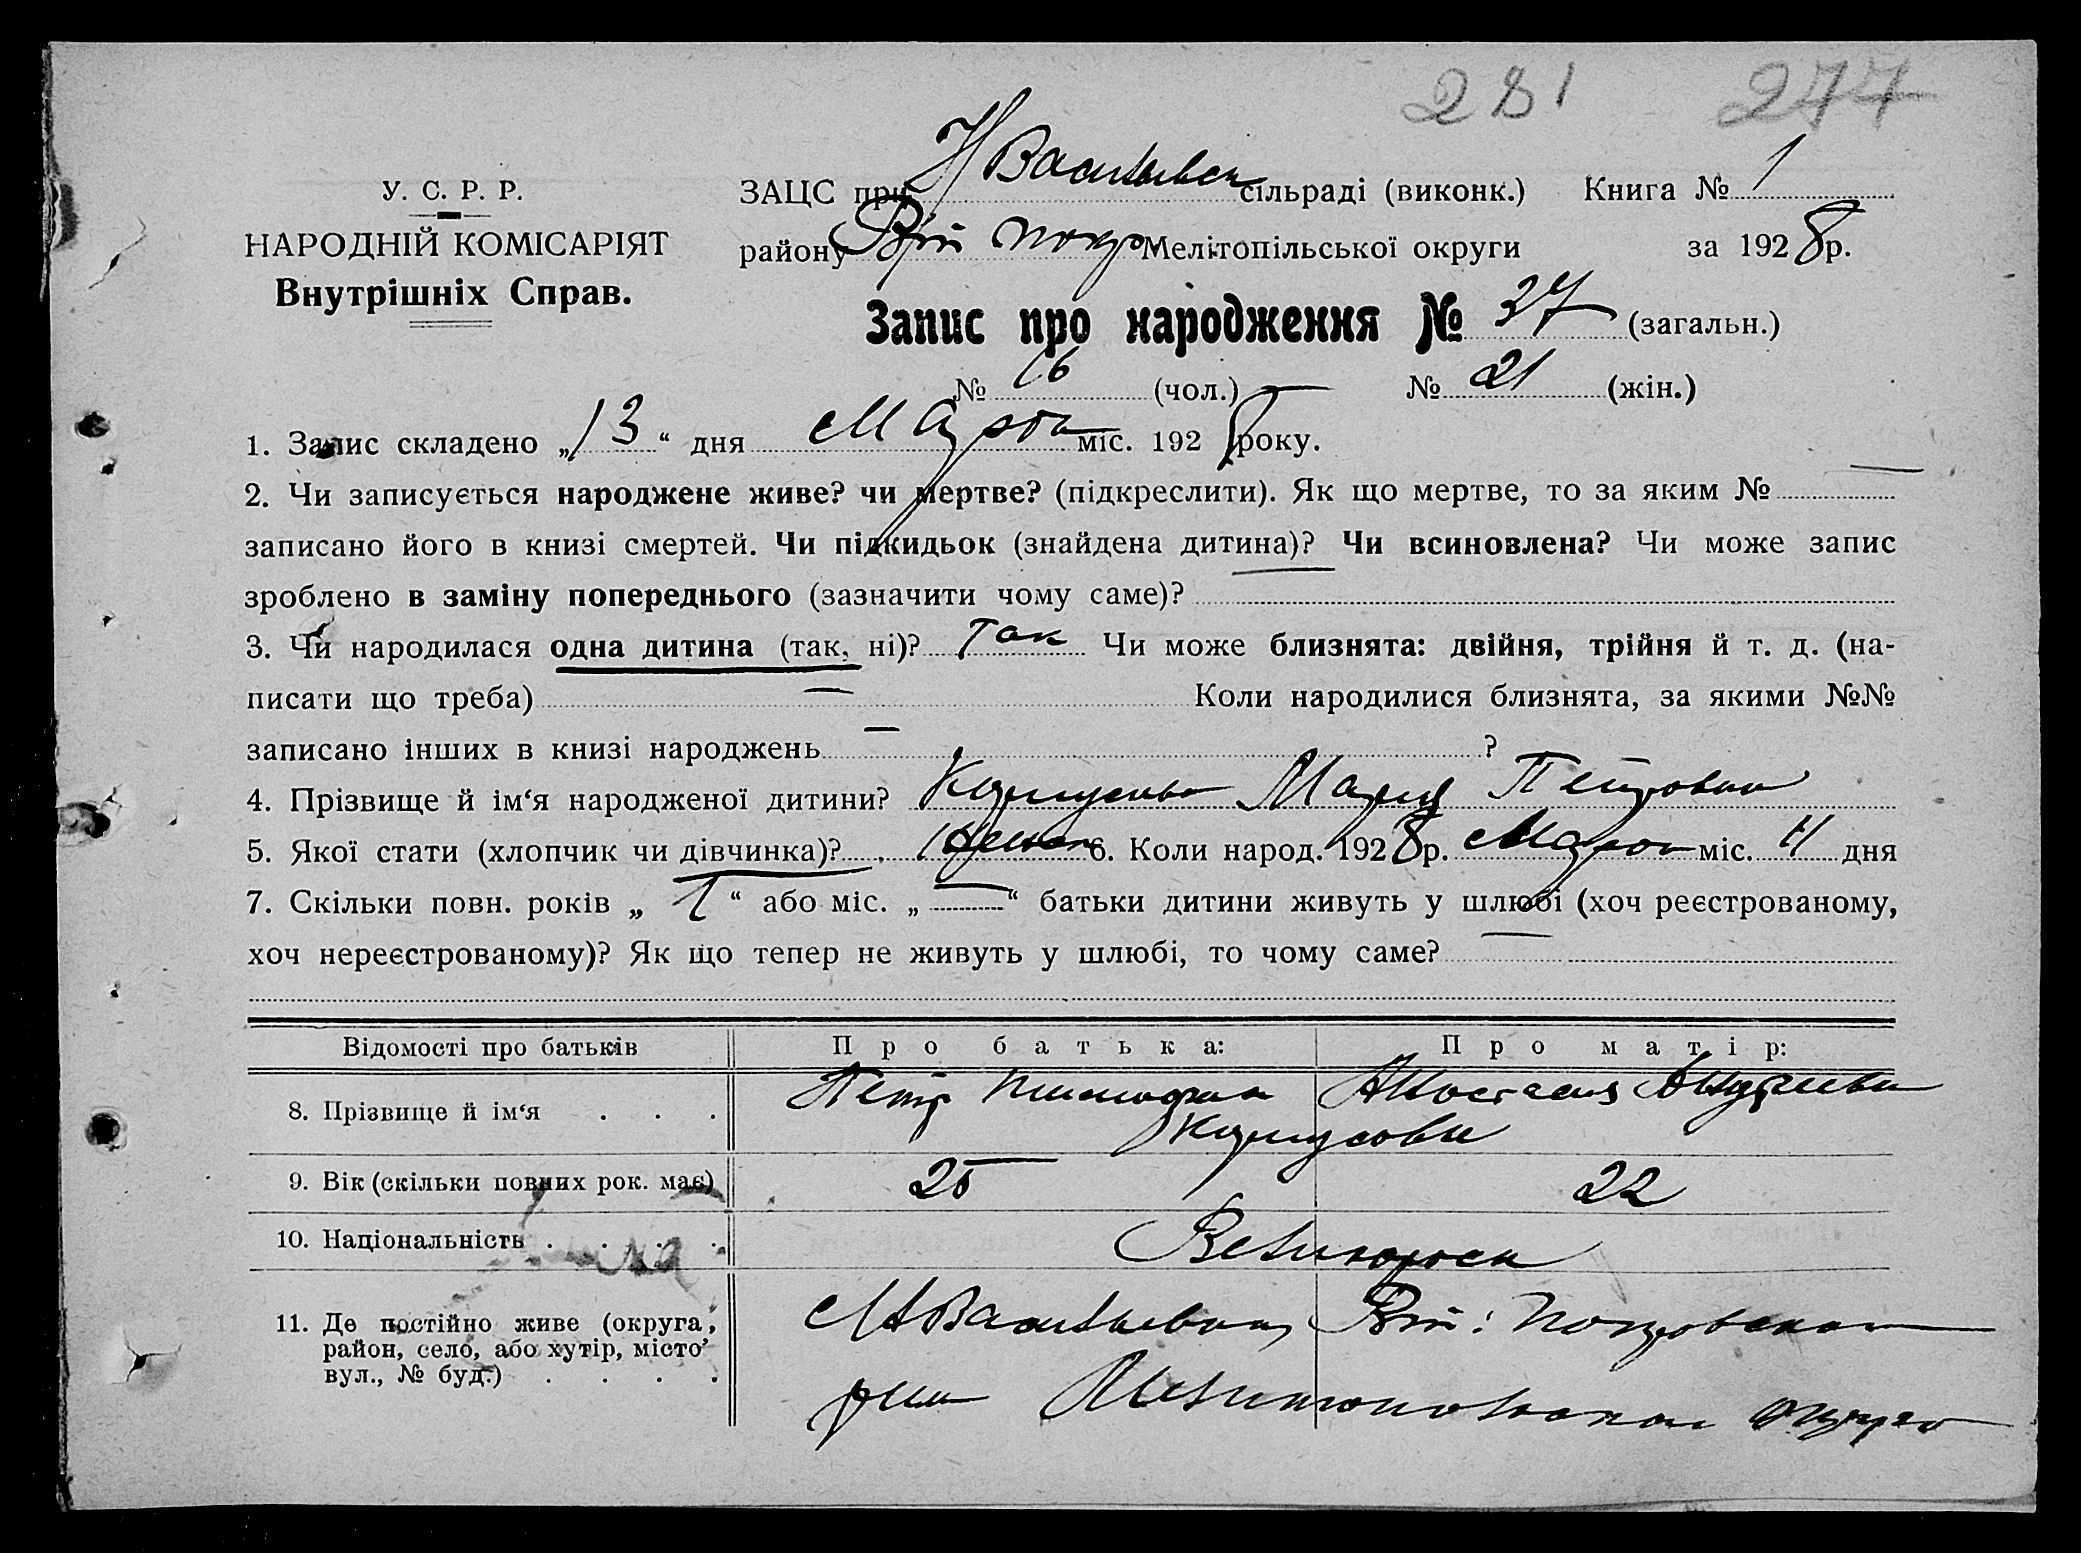 281 277
У. С. Р. Р.
НАРОДНІЙ КОМІСАРІЯТ
Внутрішніх Справ.
ЗАЦС при сільраді (виконк.) Книга № 1
району Мелітопільської округи за 1928 р.
Запис про народження № 37 (загальн.)
№ 16 (чол.) № 21 (жін.)
1. Запис складено „13“ дня Марта міс. 1928 року.
2. Чи записується народжене живе? чи мертве? (підкреслити). Як що мертве, то за яким № —
записано його в книзі смертей. Чи підкидьок (знайдена дитина)? Чи всиновлена? Чи може запис
зроблено в заміну попереднього (зазначити чому саме)? —
3. Чи народилася одна дитина (так, ні)? Так Чи може близнята: двійня, трійня й т. д. (на-
писати що треба) — Коли народилися близнята, за якими №№
записано інших в книзі народжень — ?
4. Прізвище й ім‘я народженої дитини? Мария Петровна
5. Якої стати (хлопчик чи дівчинка)? 6. Коли народ. 1928 р. Марта міс. 11 дня
7. Скільки повн. років „ “ або міс. „—“ батьки дитини живуть у шлюбі (хоч реєстрованому,
хоч нереєстрованому)? Як що тепер не живуть у шлюбі, то чому саме? —
Відомості про батьків Про батька: Про матір:
8. Прізвище й ім‘я . . . Петр Анастасия Андреевна
9. Вік (скільки повних рок. має) 25 22
10. Національність . . . . Великороси
11. Де постійно живе (округа, Покровского
район, село, або хутір, місто,
вул., № буд.) . . . . Мелитопольского округа